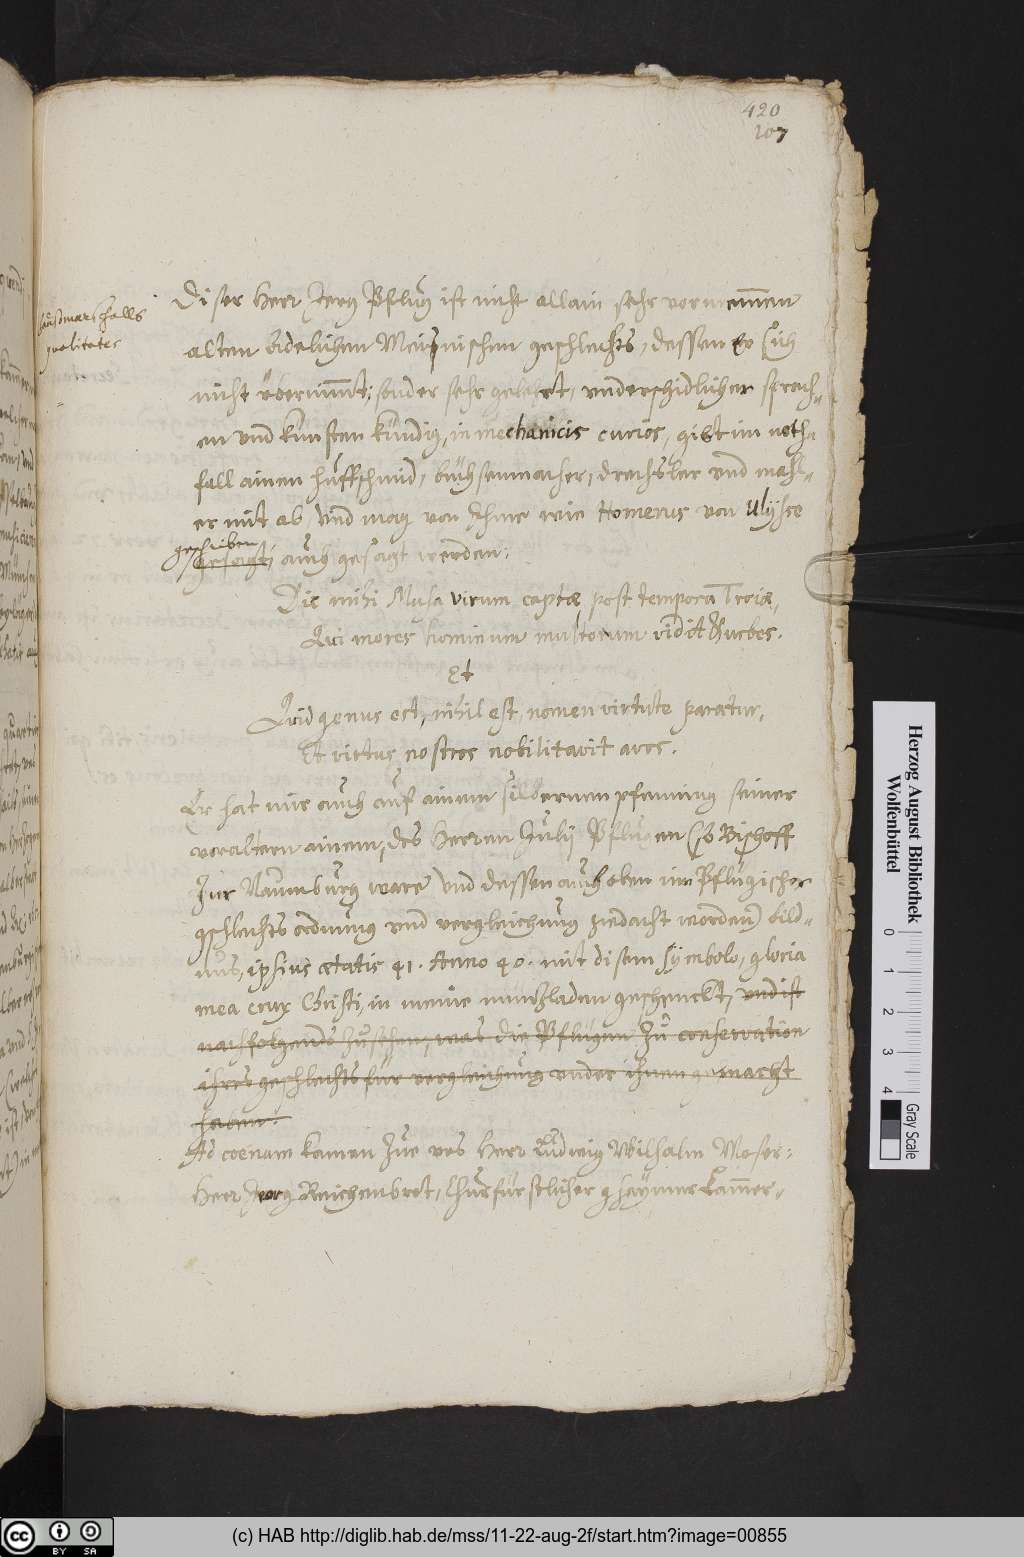 420
107
Haußmarschalls
qualitates
Diser Herr Jerg Pflug ist nicht allain sehr vornemmen
alten Adelichen Meißnischen geschlechts, dessen Er sich
nicht übernimmt; sonder sehr gelehrt, underschidlicher sprach-
en und künsten kündig, in mechanicis curios, gibt im noth-
fall ainen huffschmid, büchsenmacher, drechsler und mahl-
er mit ab, und mag von Ihme wie Homerus von Ulysse
geschriben
gesagt, auch gesagt werden:
Dic mihi Musa virum captæ post tempora Troiæ,
Qui mores hominum multorum vidit & urbes.
Et
Quid genus est, nihil est, nomen virtute paratur,
Et virtus nostros nobilitavit avos.
Er hat mir auch auf ainem silbernen pfenning seiner
voraltern ainem, des Herren Julij Pflugen (so Bischoff
zur Naumburg ware und dessen auch oben im Pflugischen
gschlechts ordnung und vergleichung gedacht worden) bild-
nus, ipsius ætatis 41. Anno 40. mit disem symbolo, gloria
mea crux Christi, in meine müntzladen geschenckt, und ist
nachfolgends zusehen, was die Pflugen zu conservation
ihres geschlechts für vergleichung under ihnen gemacht
haben.
Ad coenam kamen zue uns Herr Ludwig Wilhalm Moser:
Herr Jeorg Reichenbrot, Churfürstlicher ghaymer Cammer-
Herzog August Bibliothek
Wolfenbüttel
0 1 2 3 4
Gray Scale
cc BY SA
(c) HAB http://diglib.hab.de/mss/11-22-aug-2f/start.htm?image=00855